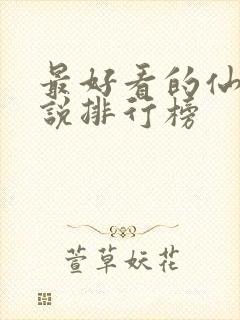 最好看的仙
說排行榜
萱草妖花